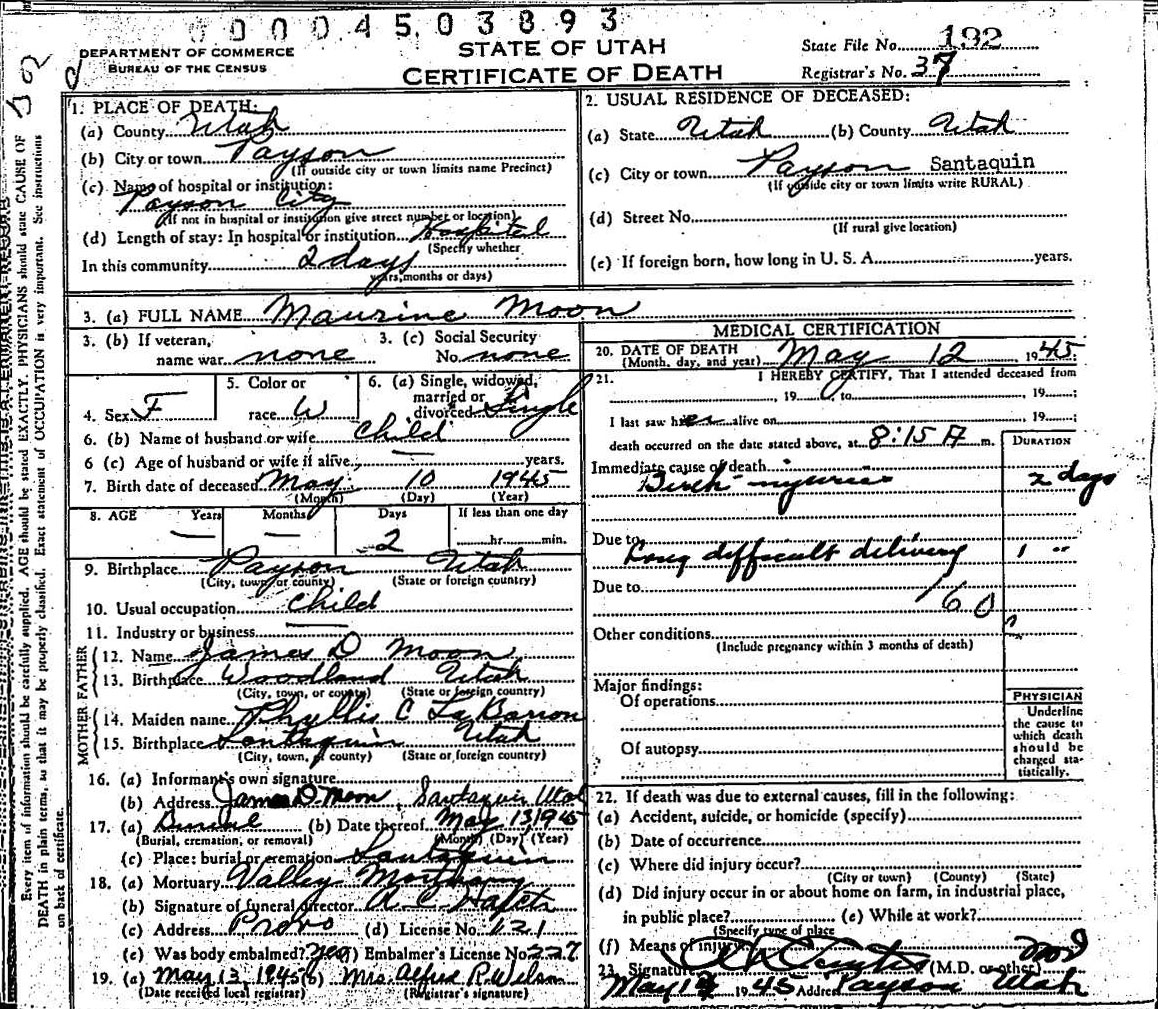 0 0 0 0 4 5 0 3 8 9 3
DEPARTMENT OF COMMERCE
BUREAU OF THE CENSUS
STATE OF UTAH
CERTIFICATE OF DEATH
State File No. 192
Registrar's No. 37
1. PLACE OF DEATH:
(a) County Utah
(b) City or town Payson
(If outside city or town limits name Precinct)
(c) Name of hospital or institution:
Payson City
(If not in hospital or institution give street number or location)
(d) Length of stay: In hospital or institution Hospital
(Specify whether
In this community 2 days
years, months or days)
2. USUAL RESIDENCE OF DECEASED:
(a) State Utah (b) County Utah
(c) City or town Payson Santaquin
(If outside city or town limits write RURAL)
(d) Street No.
(If rural give location)
(e) If foreign born, how long in U. S. A. years.
3. (a) FULL NAME Maurine Moon
3. (b) If veteran, 3. (c) Social Security
name war none No. none
4. Sex F
5. Color or
race W
6. (a) Single, widowed,
married or
divorced Single
6. (b) Name of husband or wife child
6 (c) Age of husband or wife if alive, years.
7. Birth date of deceased May 10 1945
(Month) (Day) (Year)
8. AGE Years Months Days If less than one day
— — 2 hr. min.
9. Birthplace Payson Utah
(City, town or county) (State or foreign country)
10. Usual occupation child
11. Industry or business
FATHER
12. Name James D Moon
13. Birthplace Woodland Utah
(City, town, or county) (State or foreign country)
MOTHER
14. Maiden name Phyllis C La Barron
15. Birthplace Santaquin Utah
(City, town, or county) (State or foreign country)
16. (a) Informant's own signature
(b) Address James D. Moon, Santaquin Utah
17. (a) Burial (b) Date thereof May 13 1945
(Burial, cremation, or removal) (Month) (Day) (Year)
(c) Place: burial or cremation Santaquin
18. (a) Mortuary Valley Mortuary
(b) Signature of funeral director A. C.
(c) Address Provo (d) License No. 121
(e) Was body embalmed? yes (f) Embalmer's License No. 227
19. (a) May 13, 1945 (b) Mrs. Alfred R. Wilson
(Date received local registrar) (Registrar's signature)
MEDICAL CERTIFICATION
20. DATE OF DEATH May 12 1945
(Month, day, and year)
21. I HEREBY CERTIFY, That I attended deceased from
, 19 to , 19 ;
I last saw her alive on 19 ;
death occurred on the date stated above, at 8:15 A m.
DURATION
Immediate cause of death
Birth injuries 2 days
Due to
Long difficult delivery 1 "
Due to
160
Other conditions
(Include pregnancy within 3 months of death)
Major findings:
Of operations
Of autopsy
PHYSICIAN
Underline
the cause to
which death
should be
charged sta-
tistically.
22. If death was due to external causes, fill in the following:
(a) Accident, suicide, or homicide (specify)
(b) Date of occurrence
(c) Where did injury occur?
(City or town) (County) (State)
(d) Did injury occur in or about home on farm, in industrial place,
in public place? (e) While at work?
(Specify type of place
(f) Means of injury
23. Signature (M.D. or other)
May 1945 Address Payson Utah
Every item of information should be carefully supplied. AGE should be stated EXACTLY. PHYSICIANS should state CAUSE OF
DEATH in plain terms, so that it may be properly classified. Exact statement of OCCUPATION is very important. See instructions
on back of certificate.